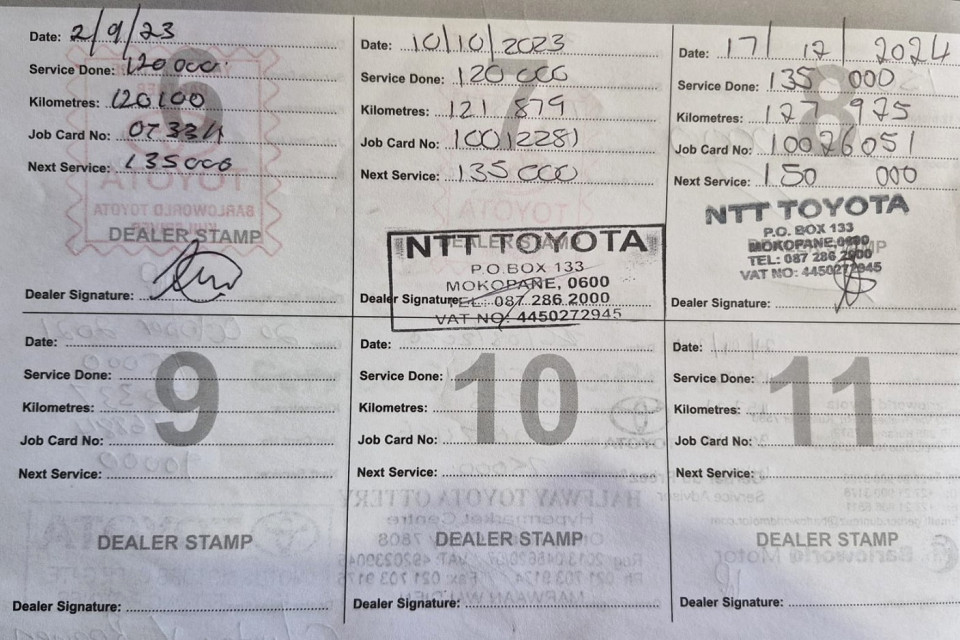 Date: 2/9/23
Service Done: 120 000
Kilometres: 120100
Job Card No: 07334
Next Service: 135000
DEALER STAMP
Dealer Signature:
Date: 10/10/2023
Service Done: 120 000
Kilometres: 121 879
Job Card No: 10012281
Next Service: 135 000
DEALER STAMP
NTT TOYOTA
P.O.BOX 133
MOKOPANE, 0600
TEL: 087 286 2000
VAT NO: 4450272945
Dealer Signature:
Date: 17/12/2024
Service Done: 135 000
Kilometres: 127 975
Job Card No: 10026051
Next Service: 150 000
8
NTT TOYOTA
P.O. BOX 133
MOKOPANE,0600
TEL: 087 286 2000
VAT NO: 4450272945
Dealer Signature:
Date:
Service Done:
Kilometres:
Job Card No:
Next Service:
9
DEALER STAMP
Dealer Signature:
Date:
Service Done:
Kilometres:
Job Card No:
Next Service:
10
DEALER STAMP
Dealer Signature:
Date:
Service Done:
Kilometres:
Job Card No:
Next Service:
11
DEALER STAMP
Dealer Signature: